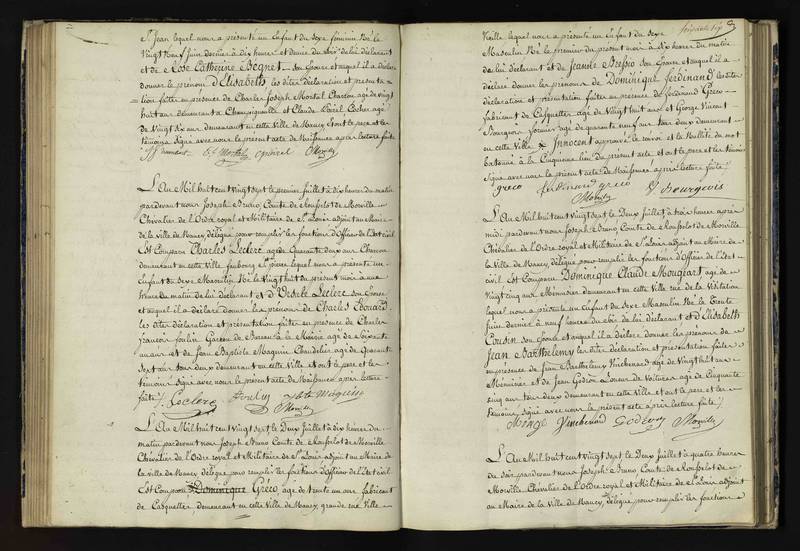 St Jean lequel nous a présenté un Enfant du sexe féminin Né le
Vingt neuf juin dernier à dix heures et demie du soir de lui déclarant
et de Rose Catherine Begnet son Epouse et auquel il a déclaré
donner le prénom d'Elisabeth les dites déclaration et présenta
tion faites en présence de Charles Joseph Mortal Charron âgé de vingt
huit ans demeurant à Champigneulles et Claude Cocher âgé
de Vingt six ans demeurant en cette Ville de Nancy et ont le père et les
témoins signé avec nous le présent acte de Naissance après lecture faite
L'An Mil huit cent vingt sept le premier juillet à dix heures du matin
pardevant nous Joseph Bruno Comte de Rousselot de Morville
Chevalier de l'Ordre royal et Militaire de St Louis adjoint au Maire
de la ville de Nancy délégué pour remplir les fonctions d'Officier de l'Etat civil
Est Comparu Charles Leclerc âgé de Quarante deux ans Charron
demeurant en cette Ville faubourg St pierre lequel nous a présenté un
Enfant du sexe Masculin Né le Vingt huit du présent mois à une
heure du matin de lui déclarant et d'Ursule Leclerc son Epouse
et auquel il a déclaré donner les prénoms de Charles Edouard
les dites déclaration et présentation faites en presence de Charles
Poulin Garçon de Bureau à la Mairie âgé de soixante
un ans et de Jean Baptiste Maguin Chandelier âgé de Quarante
sept ans tous deux demeurant en cette Ville et ont le père et les
témoins signé avec nous le présent acte de Naissance après lecture
faite Leclerc Poulin
L'An Mil huit cent vingt sept le Deux Juillet à dix heures du
matin pardevant nous Joseph Bruno Comte de Rousselot de Morville
Chevalier de l'Ordre royal et Militaire de St Louis adjoint au Maire de
la ville de Nancy délégué pour remplir les fonctions d'Officier de l'Etat civil
Est Comparu Dominique Gréco, âgé de trente un ans fabricant
de Casquettes demeurant en cette Ville de Nancy, grande rue Ville
Vieille lequel nous a présenté un Enfant du sexe
Masculin Né le premier du présent mois à dix heures du matin
de lui déclarant et de Jeanne Bresso son Epouse et auquel il a
déclaré donner les prénoms de Dominique Ferdinand les dites
déclaration et présentation faites en présence de Ferdinand Gréco
fabricant de Casquettes âgé de Vingt huit ans et George Vincent
Bourgeois âgé de quarante neuf ans tous deux demeurant
en cette Ville Innocent approuvé le renvoi et la Nullité du mot
batonné à la Cinquième ligne du présent acte, et ont le père et les témoins
signé avec nous le présent acte de Naissance après lecture faite
greco ferdinand greco Bourgeois
L'An Mil huit cent vingt sept le Deux Juillet à trois heures après
midi pardevant nous Joseph Bruno Comte de Rousselot de Morville
Chevalier de l'Ordre royal et Militaire de St Louis adjoint au Maire de
la Ville de Nancy délégué pour remplir les fonctions d'Officier de l'Etat
civil Est Comparu Dominique Claude Mougiart âgé de
Vingt cinq ans Menuisier demeurant en cette Ville rue de la Visitation
lequel nous a présenté un Enfant du sexe Masculin Né le trente
juin dernier à neuf heures du soir de lui déclarant et d'Elisabeth
Cousin son Epouse et auquel il a déclaré donner les prénoms de
Jean Barthelemy les dites déclaration et présentation faites
en présence de Jean Barthelemy âgé de Vingt huit ans
Menuisier et de Jean Godron Loueur de Voitures âgé de Cinquante
cinq ans tous deux demeurant en cette Ville et ont le père et les
témoins, signé avec nous le présent acte après lecture faite
L'An Mil huit cent vingt sept le Deux Juillet à quatre heures
du soir pardevant nous Joseph Bruno Comte de Rousselot de
Morville Chevalier de l'Ordre royal et Militaire de St Louis adjoint
au Maire de la Ville de Nancy délégué pour remplir les fonctions